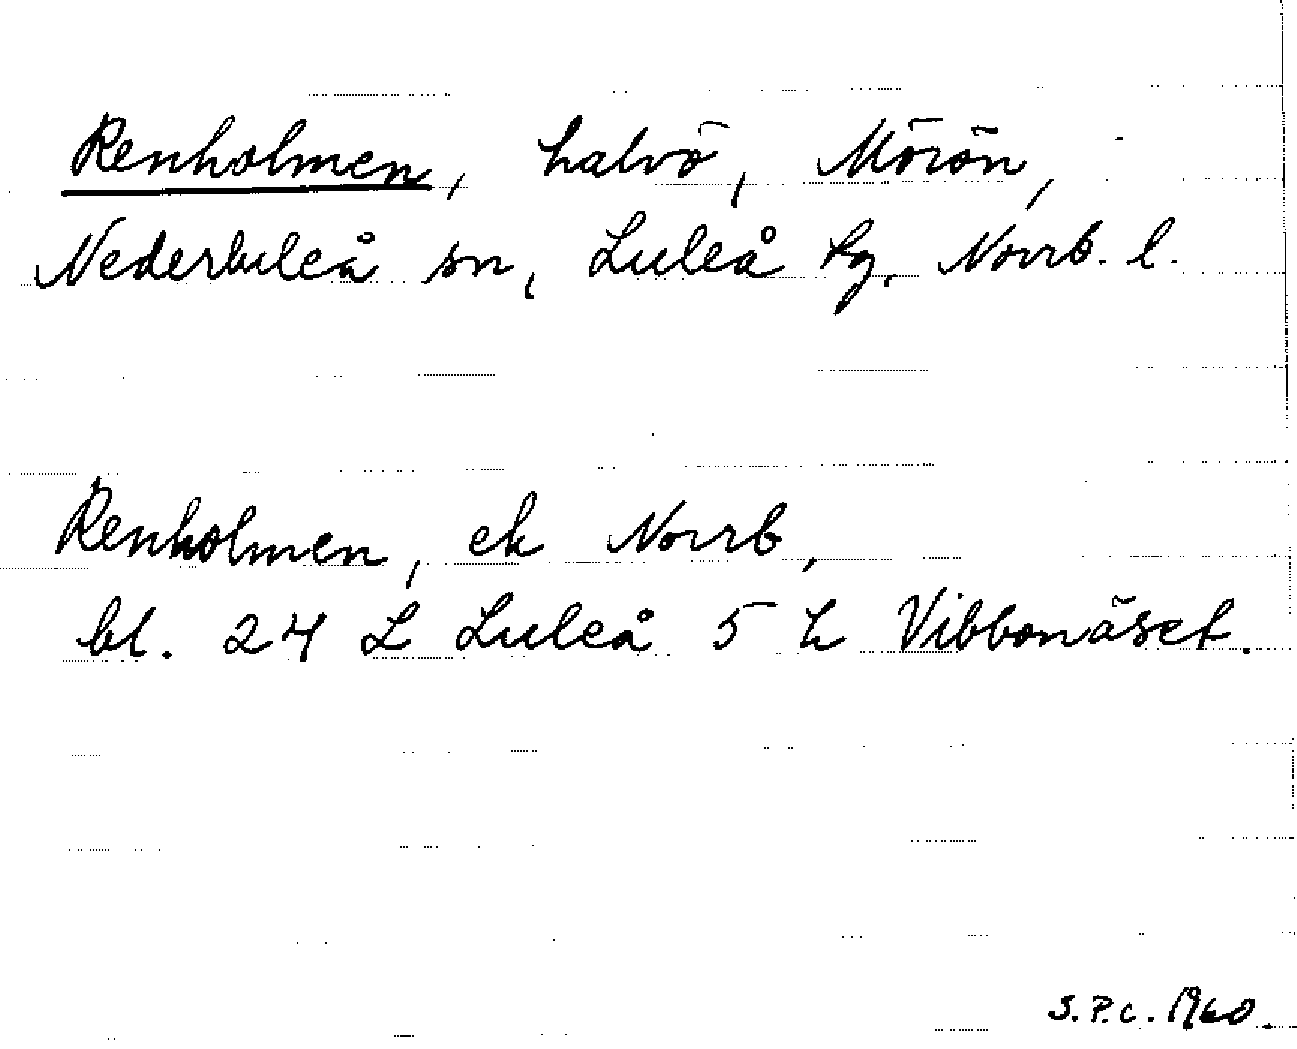 Renholmen, halvö, Mörön,
Nederluleå sn, Luleå tg. Norrb. l.
Renholmen, ek Norrb,
bl. 24 L Luleå 5 h Vibbonäset.
S.P.C. 1960.